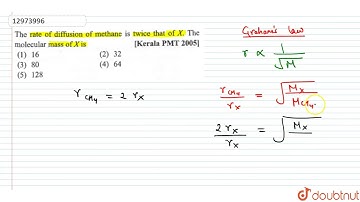 12973996
The rate of diffusion of methane is twice that of X. The
molecular mass of X is [Kerala PMT 2005]
(1) 16 (2) 32
(3) 80 (4) 64
(5) 128
r CH4 = 2 rX
Graham's law
r ∝ 1/√M
rCH4/rX = √(MX/MCH4)
2 rX/rX = √(MX/
doubtnut